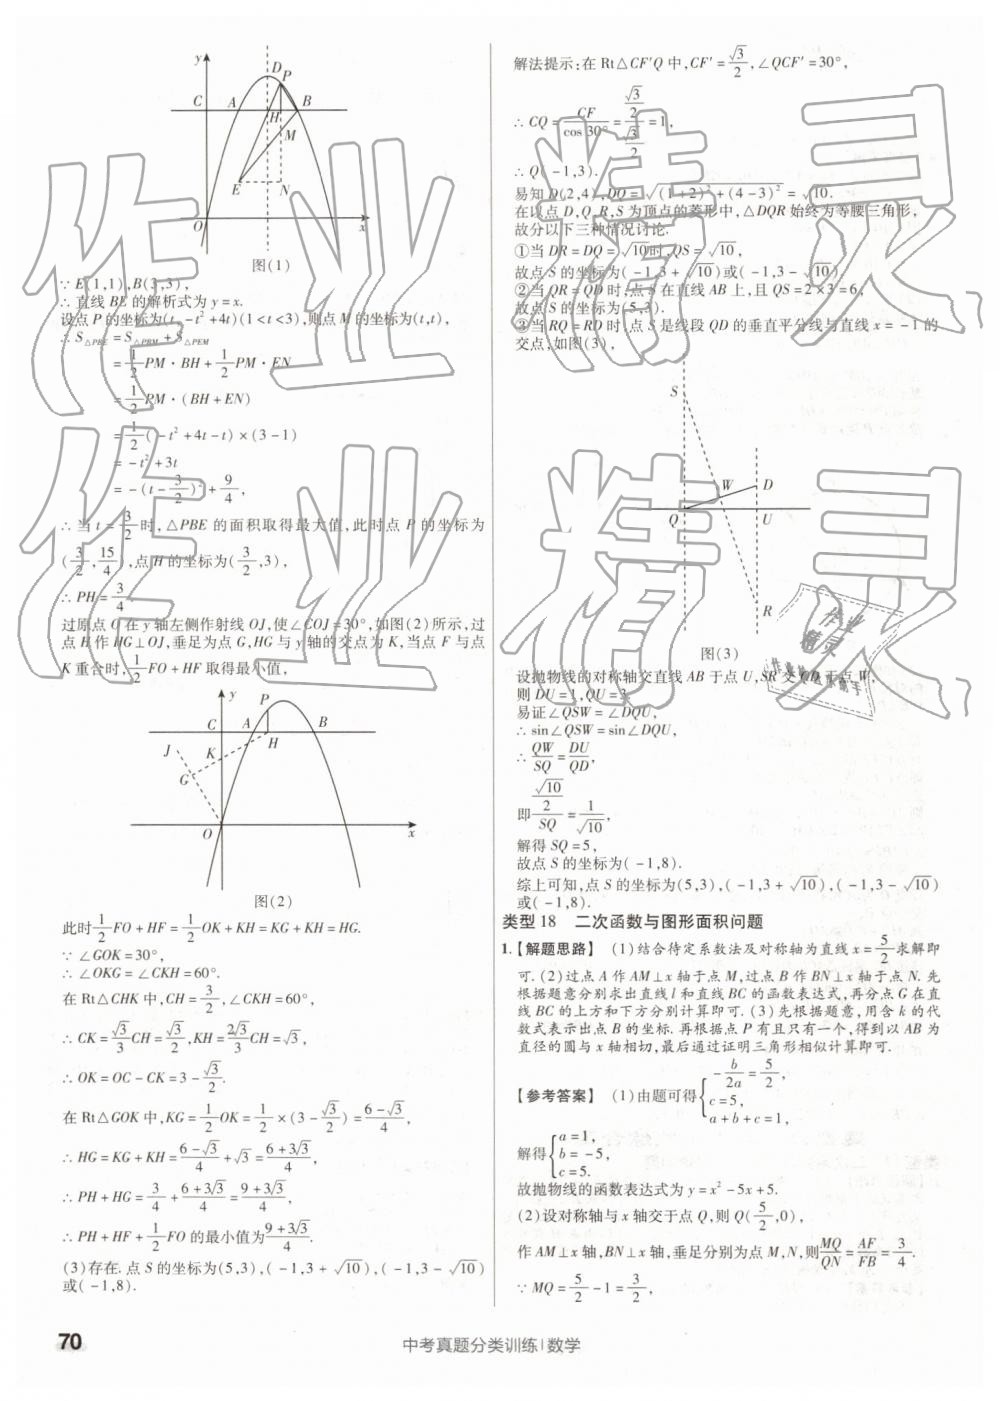 y
D
P
C
A
H
B
M
E
N
O
x
图(1)
∵ E(1,1),B(3,3),
∴ 直线 BE 的解析式为 y=x.
设点 P 的坐标为(t,-t²+4t)(1<t<3),则点 M 的坐标为(t,t),
∴ S△PBE = S△PBM + S△PEM
= 1/2 PM·BH + 1/2 PM·EN
= 1/2 PM·(BH+EN)
= 1/2(-t²+4t-t)×(3-1)
= -t²+3t
= -(t-3/2)²+9/4,
∴ 当 t=3/2 时,△PBE 的面积取得最大值,此时点 P 的坐标为
(3/2,15/4),点 H 的坐标为(3/2,3),
∴ PH=3/4.
过原点 O 在 y 轴左侧作射线 OJ,使∠COJ=30°,如图(2)所示,过
点 H 作 HG⊥OJ,垂足为点 G,HG 与 y 轴的交点为 K,当点 F 与点
K 重合时,1/2 FO+HF 取得最小值,
y
P
C
A
B
H
J
K
G
O
x
图(2)
此时 1/2 FO+HF=1/2 OK+KH=KG+KH=HG.
∵ ∠GOK=30°,
∴ ∠OKG=∠CKH=60°.
在 Rt△CHK 中,CH=3/2,∠CKH=60°,
∴ CK=√3/3 CH=√3/2,KH=2√3/3 CH=√3,
∴ OK=OC-CK=3-√3/2.
在 Rt△GOK 中,KG=1/2 OK=1/2×(3-√3/2)=(6-√3)/4,
∴ HG=KG+KH=(6-√3)/4+√3=(6+3√3)/4,
∴ PH+HG=3/4+(6+3√3)/4=(9+3√3)/4,
∴ PH+HF+1/2 FO 的最小值为(9+3√3)/4.
(3)存在. 点 S 的坐标为(5,3),(-1,3+√10),(-1,3-√10)
或(-1,8).
解法提示:在 Rt△CF′Q 中,CF′=√3/2,∠QCF′=30°,
∴ CQ=CF/cos 30°=(√3/2)/(√3/2)=1,
∴ Q(-1,3).
易知 D(2,4),DQ=√((1+2)²+(4-3)²)=√10.
在以点 D,Q,R,S 为顶点的菱形中,△DQR 始终为等腰三角形,
故分以下三种情况讨论.
①当 DR=DQ=√10时,QS=√10,
故点 S 的坐标为(-1,3+√10)或(-1,3-√10).
②当 QR=QD 时,点 S 在直线 AB 上,且 QS=2×3=6,
故点 S 的坐标为(5,3).
③当 RQ=RD 时,点 S 是线段 QD 的垂直平分线与直线 x=-1 的
交点,如图(3),
S
W
D
Q
U
R
图(3)
设抛物线的对称轴交直线 AB 于点 U,SR 交 QD 于点 W,
则 DU=1,QU=3.
易证∠QSW=∠DQU,
∴ sin∠QSW=sin∠DQU,
∴ QW/SQ=DU/QD,
即(√10/2)/SQ=1/√10,
解得 SQ=5,
故点 S 的坐标为(-1,8).
综上可知,点 S 的坐标为(5,3),(-1,3+√10),(-1,3-√10)
或(-1,8).
类型 18 二次函数与图形面积问题
1.【解题思路】 (1)结合待定系数法及对称轴为直线 x=5/2求解即
可. (2)过点 A 作 AM⊥x 轴于点 M,过点 B 作 BN⊥x 轴于点 N. 先
根据题意分别求出直线 l 和直线 BC 的函数表达式,再分点 G 在直
线 BC 的上方和下方分别计算即可. (3)先根据题意,用含 k 的代
数式表示出点 B 的坐标. 再根据点 P 有且只有一个,得到以 AB 为
直径的圆与 x 轴相切,最后通过证明三角形相似计算即可.
【参考答案】 (1)由题可得{-b/2a=5/2,
c=5,
a+b+c=1,
解得{a=1,
b=-5,
c=5.
故抛物线的函数表达式为 y=x²-5x+5.
(2)设对称轴与 x 轴交于点 Q,则 Q(5/2,0),
作 AM⊥x 轴,BN⊥x 轴,垂足分别为点 M,N,则MQ/QN=AF/FB=3/4.
∵ MQ=5/2-1=3/2,
70
中考真题分类训练|数学
作业
精灵
作业
精灵
作业
精灵